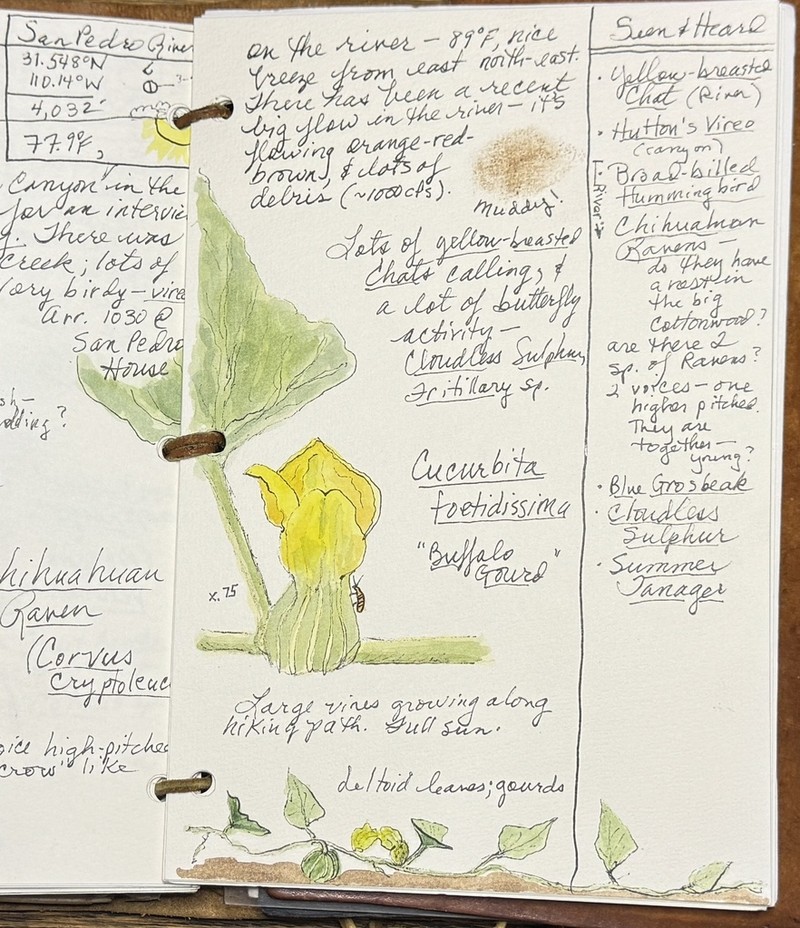 San Pedro River
31.548°N
110.14°W
4,032'
77.9°F,
Canyon in the
for an intervie
There was
creek; lots of
very birdy – vire
arr. 1030 @
San Pedro
House
sh–
dding?
hihuahuan
Raven
(Corvus
cryptoleuc
oice high-pitche
crow" like
on the river – 89°F, nice
breeze from east north-east.
There has been a recent
big flow in the river – it's
flowing orange-red-
brown, & lots of
debris (~1000 cfs).
muddy!
Lots of yellow-breasted
Chats calling, &
a lot of butterfly
activity –
Cloudless Sulphur,
Fritillary sp.
Cucurbita
foetidissima
"Buffalo
Gourd"
x.75
Large vines growing along
hiking path. Full sun.
deltoid leaves; gourds
Seen & Heard
· Yellow-breasted
Chat (River)
· Hutton's Vireo
(canyon)
River
· Broad-billed
Hummingbird
· Chihuahuan
Ravens –
do they have
a nest in
the big
cottonwood?
are there 2
sp. of Ravens?
2 voices – one
higher pitched.
They are
together –
young?
· Blue Grosbeak
· Cloudless
Sulphur
· Summer
Tanager